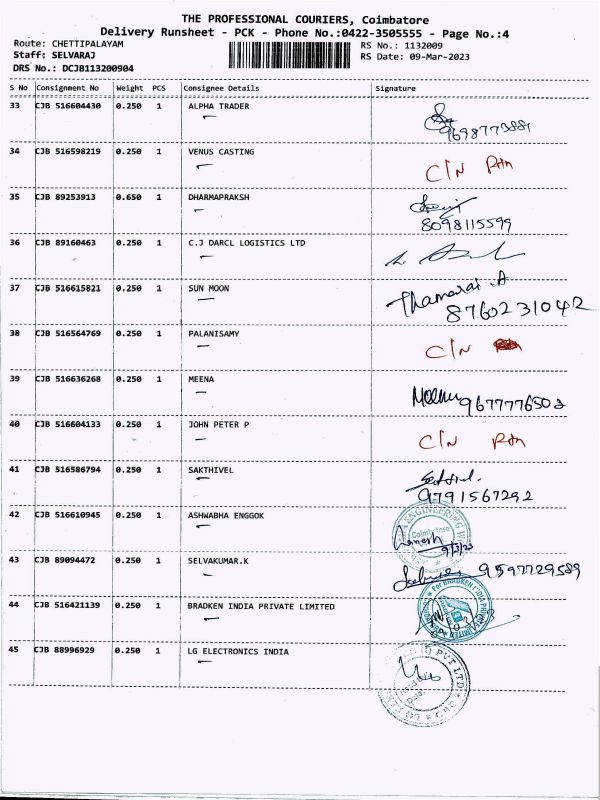 THE PROFESSIONAL COURIERS, Coimbatore
Delivery Runsheet - PCK - Phone No.:0422-3505555 - Page No.:4
Route: CHETTIPALAYAM
Staff: SELVARAJ
DRS No.: DCJB113200904
RS No.: 1132009
RS Date: 09-Mar-2023
S No Consignment No Weight PCS Consignee Details Signature
33 CJB 516604430 0.250 1 ALPHA TRADER
9698773881
34 CJB 516598219 0.250 1 VENUS CASTING C/N Rtn
35 CJB 89253913 0.650 1 DHARMAPRAKSH
8098115599
36 CJB 89160463 0.250 1 C.J DARCL LOGISTICS LTD
37 CJB 516615821 0.250 1 SUN MOON Thamarai .A
8760231042
38 CJB 516564769 0.250 1 PALANISAMY C/N
39 CJB 516636268 0.250 1 MEENA Meena 9677776502
40 CJB 516604133 0.250 1 JOHN PETER P C/N Rtn
41 CJB 516586794 0.250 1 SAKTHIVEL
9791567292
42 CJB 516610945 0.250 1 ASHWABHA ENGGOK
ENGINEERING
Coimbatore
9/3/23
43 CJB 89094472 0.250 1 SELVAKUMAR.K 9597729589
44 CJB 516421139 0.250 1 BRADKEN INDIA PRIVATE LIMITED
For BRADKEN INDIA PRIVATE LIMITED
45 CJB 88996929 0.250 1 LG ELECTRONICS INDIA
PVT LTD